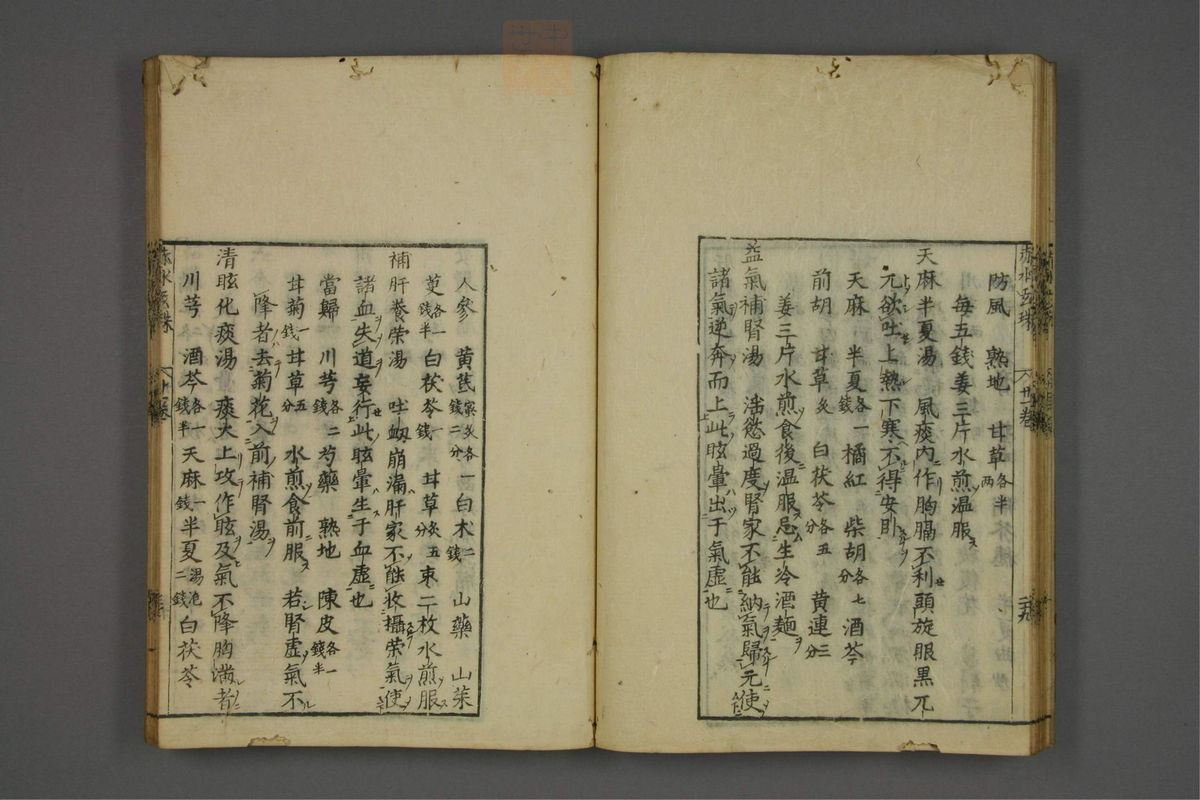 赤水玄珠 廿卷 二十九
防風 熟地 甘草各半兩
每五錢姜三片水煎溫服
天麻半夏湯 風痰內作胸膈不利頭旋眼黑兀
兀欲吐上熱下寒不得安臥
天麻 半夏各一錢 橘紅 柴胡各七分 酒芩
前胡 甘草炙 白茯苓各五分 黃連三分
姜三片水煎食後溫服忌生冷酒麵
益氣補腎湯 淫慾過度腎家不能納氣歸元使
諸氣逆奔而上此眩暈出于氣虛也
人參 黃芪蜜炙各一錢二分 白朮二錢 山藥 山茱
萸各一錢半 白茯苓一錢 甘草炙五分 枣二枚水煎服
補肝養榮湯 吐衂崩漏肝家不能收攝榮氣使
諸血失道妄行此眩暈生于血虛也
當歸 川芎各二錢 芍藥 熟地 陳皮各一錢半
甘菊一錢 甘草五分 水煎食前服 若腎虛氣不
降者去菊花入前補腎湯
清眩化痰湯 痰火上攻作眩及氣不降胸滿者
川芎 酒芩各一錢半 天麻一錢 半夏湯泡二錢 白茯苓
赤水玄珠